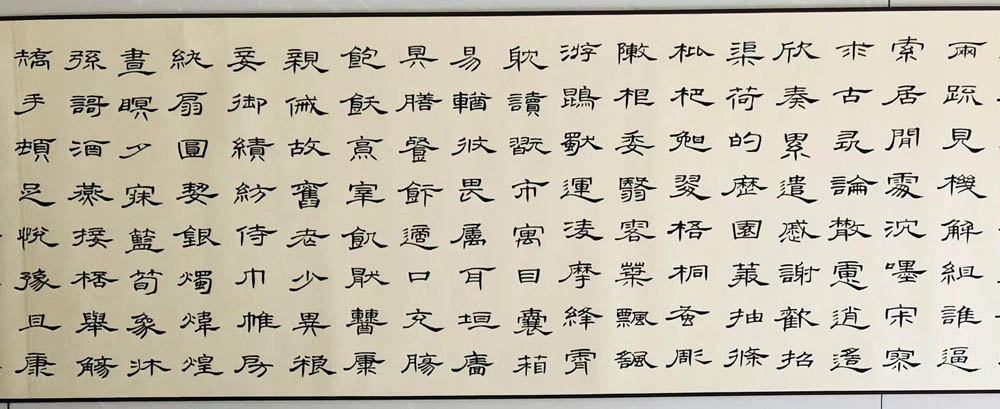 兩疏見機解組誰逼
索居閒處沉嚜寂寥
求古尋論散慮逍遙
欣奏累遣慼謝歡招
渠荷的歷園莽抽條
枇杷晚翠梧桐蚤彫
陳根委翳落葉飄颻
游鵾獨運凌摩絳霄
耽讀翫市寓目囊箱
易輶攸畏屬耳垣牆
具膳餐飯適口充腸
飽飫烹宰飢厭糟糠
親戚故舊老少異糧
妾御績紡侍巾帷房
紈扇圓絜銀燭煒煌
晝瞑夕寐籃筍象床
絃謌酒燕接桮舉觴
矯手頓足悅豫且康